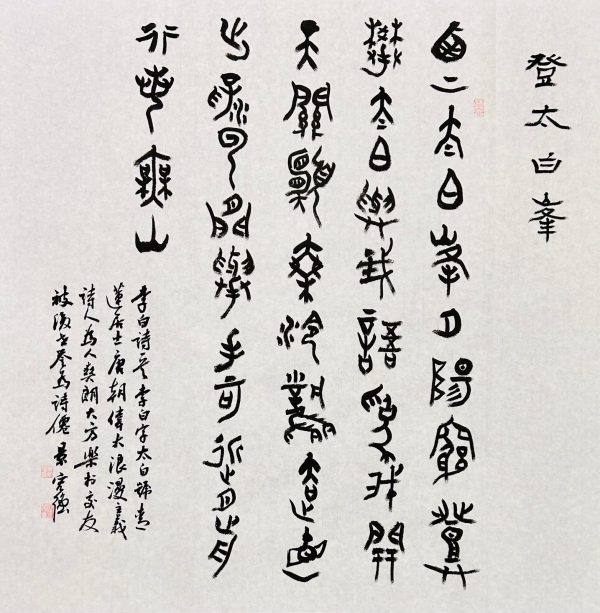 登太白峯
西上太白峯夕陽窮登
攀太白與我語為我開
天關願乘泠風去直
出浮云間舉手可近月前
行若無山
李白詩 李白字太白號青
蓮居士唐朝偉大浪漫主義
詩人為人爽朗大方樂於交友
被後世譽為詩僊